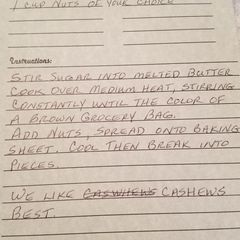 1 cup nuts of your choice
Instructions:
Stir sugar into melted butter
Cook over medium heat, stirring
constantly until the color of
a brown grocery bag.
Add nuts, spread onto baking
sheet, cool then break into
pieces.
We like caswhews cashews
best.